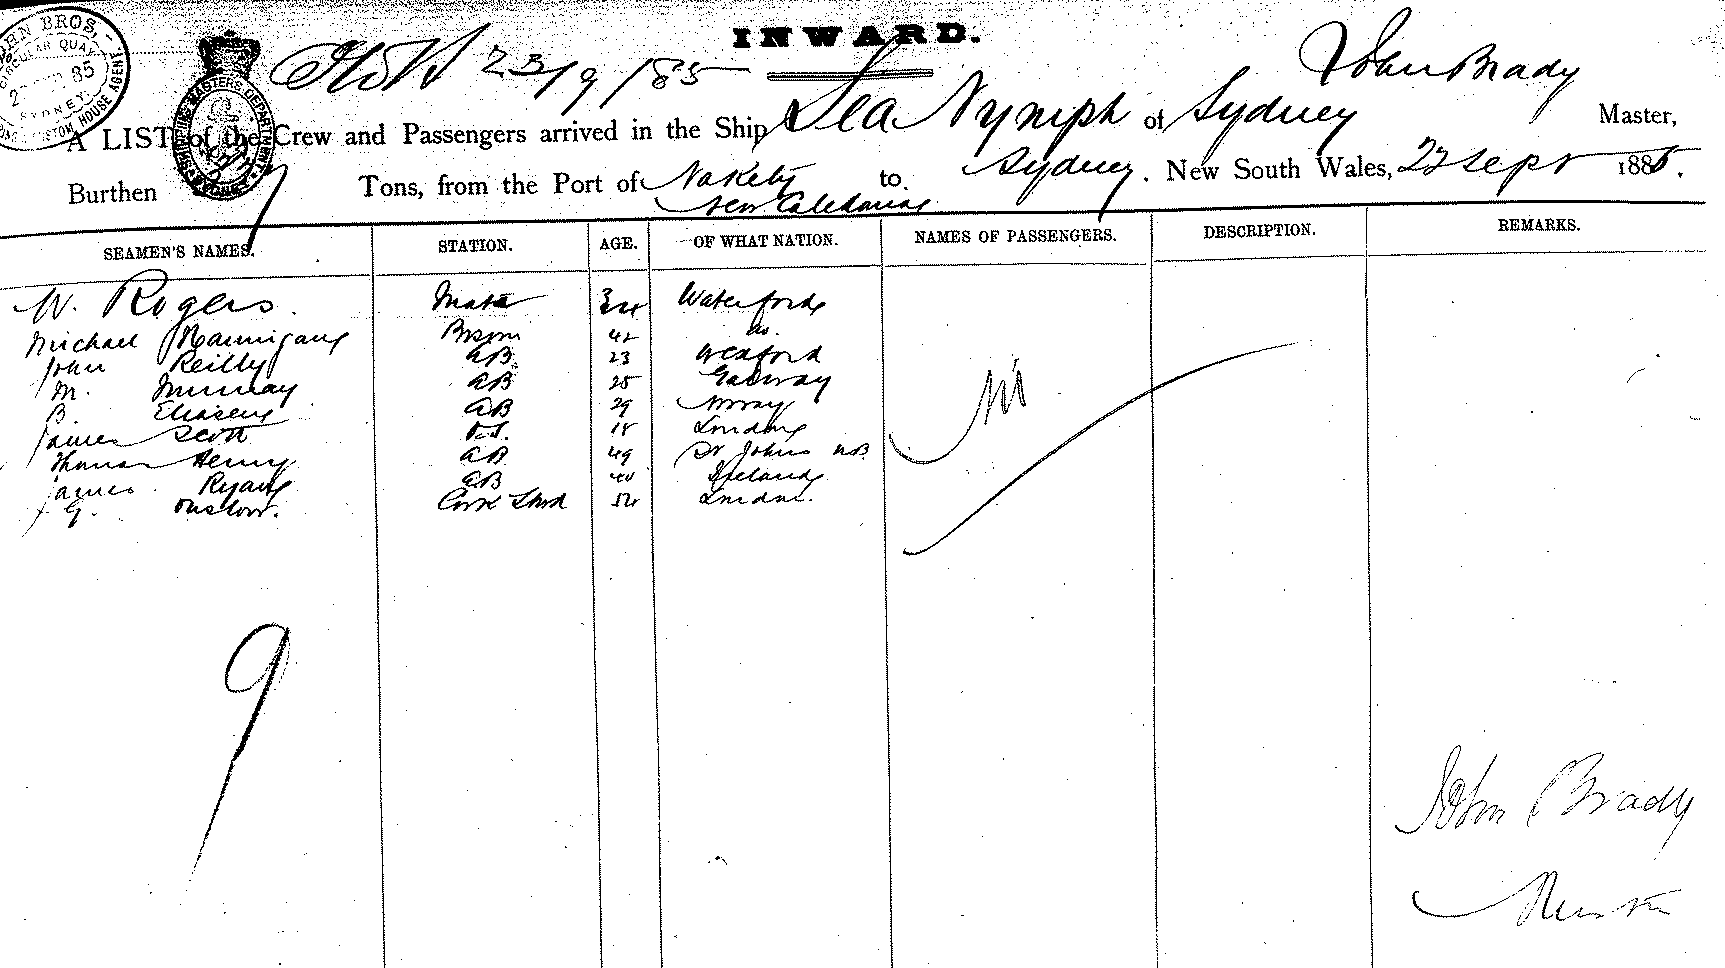 INWARD.
23/9/85
John Brady
A LIST of the Crew and Passengers arrived in the Ship Sea Nymph of Sydney Master,
Burthen Tons, from the Port of Nakety New Caledonia to Sydney. New South Wales, 22 Sept 1885.
SEAMEN'S NAMES. STATION. AGE. OF WHAT NATION. NAMES OF PASSENGERS. DESCRIPTION. REMARKS.
W. Rogers. Mate 34 Waterford
Michael Hannigan Bosom 42 do.
John Reilly AB 23 Wexford
M. Murray AB 25 Galway
B. Eliasen AB 29 Norway
James Scott O.S. 18 London
Thomas Henry AB 49 St Johns NB
James Ryan AB 40 Ireland
G. Onslow. Cook Stwd 54 London.
Nil
9
John Brady
Master